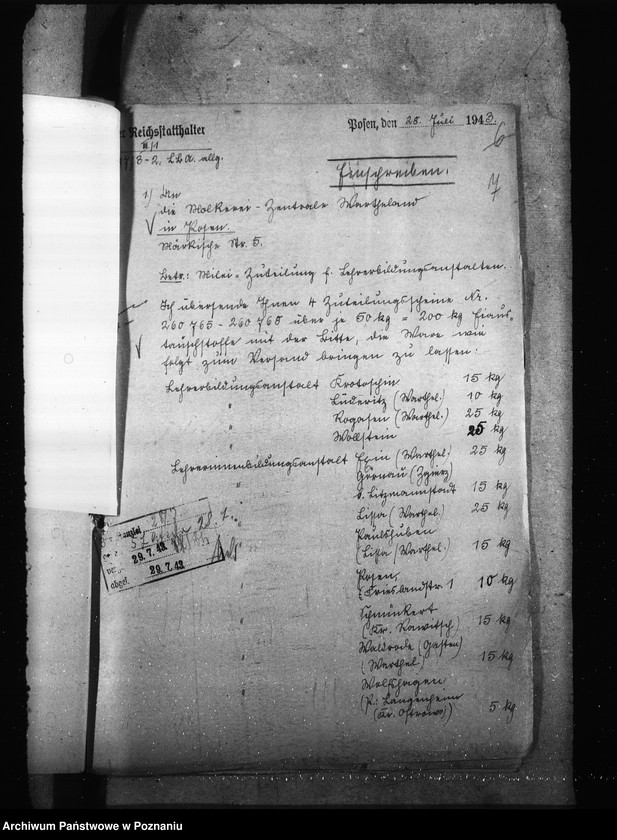 Reichsstatthalter
Posen, den 28. Juli 1943.
6
II/1
3-2. LBA. allg.
Einschreiben.
7
1) An
die Molkerei-Zentrale Wartheland
in Posen.
Märkische Str. 5.
Betr.: Milei-Zuteilung f. Lehrerbildungsanstalten.
Ich übersende Ihnen 4 Zuteilungsscheine Nr.
260765-260768 über je 50 kg = 200 kg Eiaus-
tauschstoffe mit der Bitte, die Ware wie
folgt zum Versand bringen zu lassen:
Lehrerbildungsanstalt Krotoschin 15 kg
" (Warthel.) 10 kg
" Rogasen (Warthel.) 25 kg
" Wollstein 25 kg
Lehrerinnenbildungsanstalt Exin (Warthel.) 25 kg
" Görnau (Zgierz)
b. Litzmannstadt 15 kg
" Lissa (Warthel.) 25 kg
(Lissa (Warthel.) 15 kg
" Posen,
1 10 kg
"
(Kr. Rawitsch) 15 kg
" Waldrode (Gasten)
(Warthel.) 15 kg
" Wolfshagen
(P.: Langenheim
(Kr. Ostrowo)) 5 kg
29.7.43
abges. 29.7.43
Archiwum Państwowe w Poznaniu